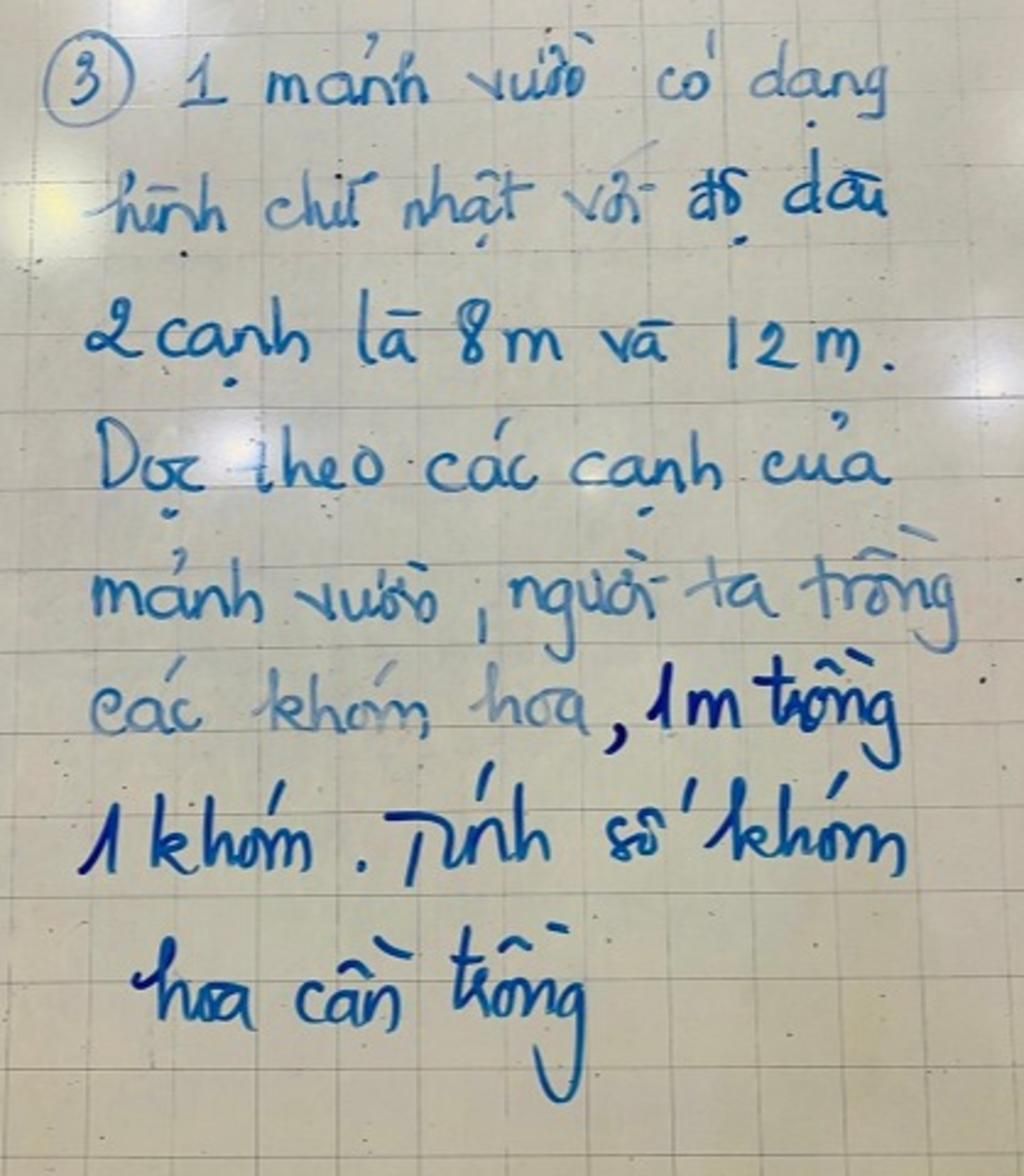 ③ 1 mảnh vườn có dạng
hình chữ nhật với độ dài
2 cạnh là 8m và 12m.
Dọc theo các cạnh của
mảnh vườn, người ta trồng
các khóm hoa, 1m trồng
1 khóm. Tính số khóm
hoa cần trồng